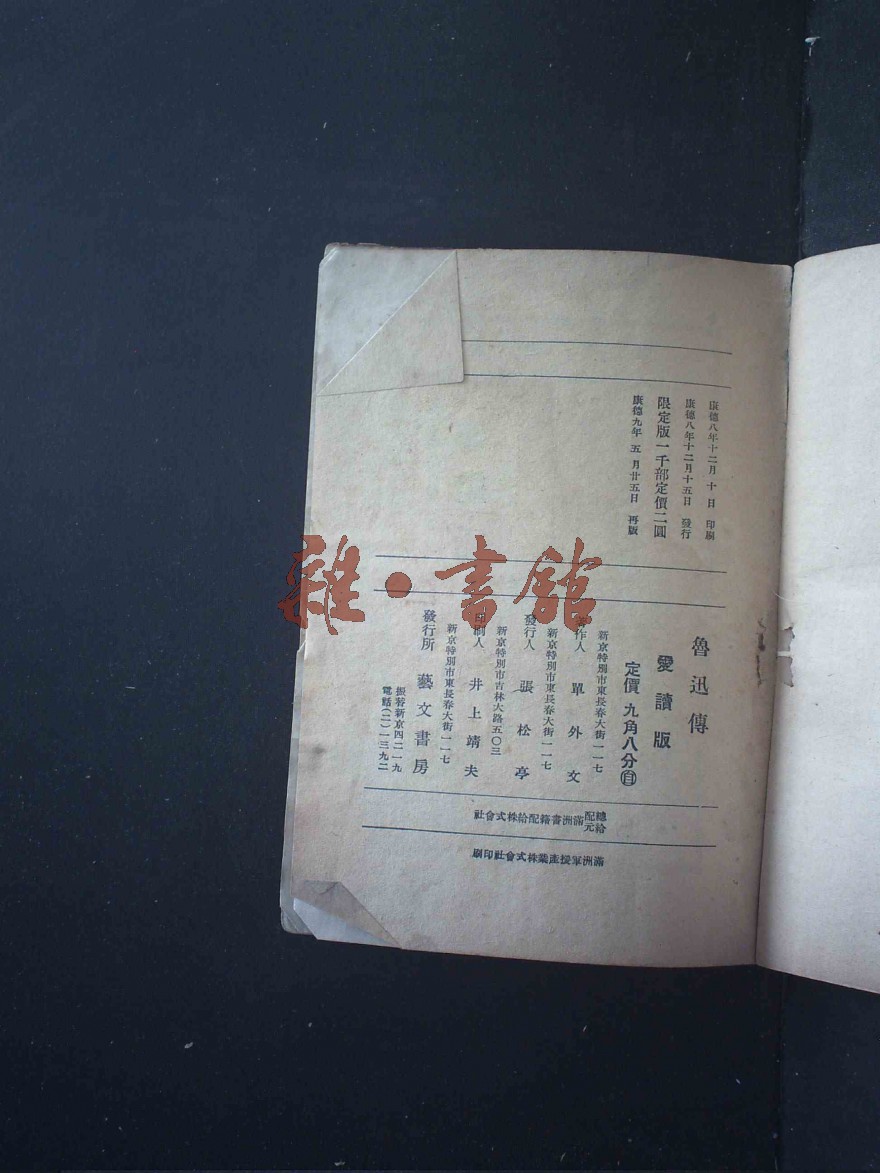 康德八年十二月十日 印刷
康德八年十二月十五日 發行
限定版一千部定價二圓
康德九年 五月廿五日 再版
魯迅傳
愛讀版
定價 九角八分
新京特別市東長春大街一一七
著作人 單外文
新京特別市東長春大街一一七
發行人 張松亭
新京特別市吉林大路五〇三
印刷人 井上靖夫
新京特別市東長春大街一一七
發行所 藝文書房
振替新京四二一九
電話(二)一三九二
總配給元 滿洲書籍配給株式會社
滿洲軍援產業株式會社印刷
雜·書館